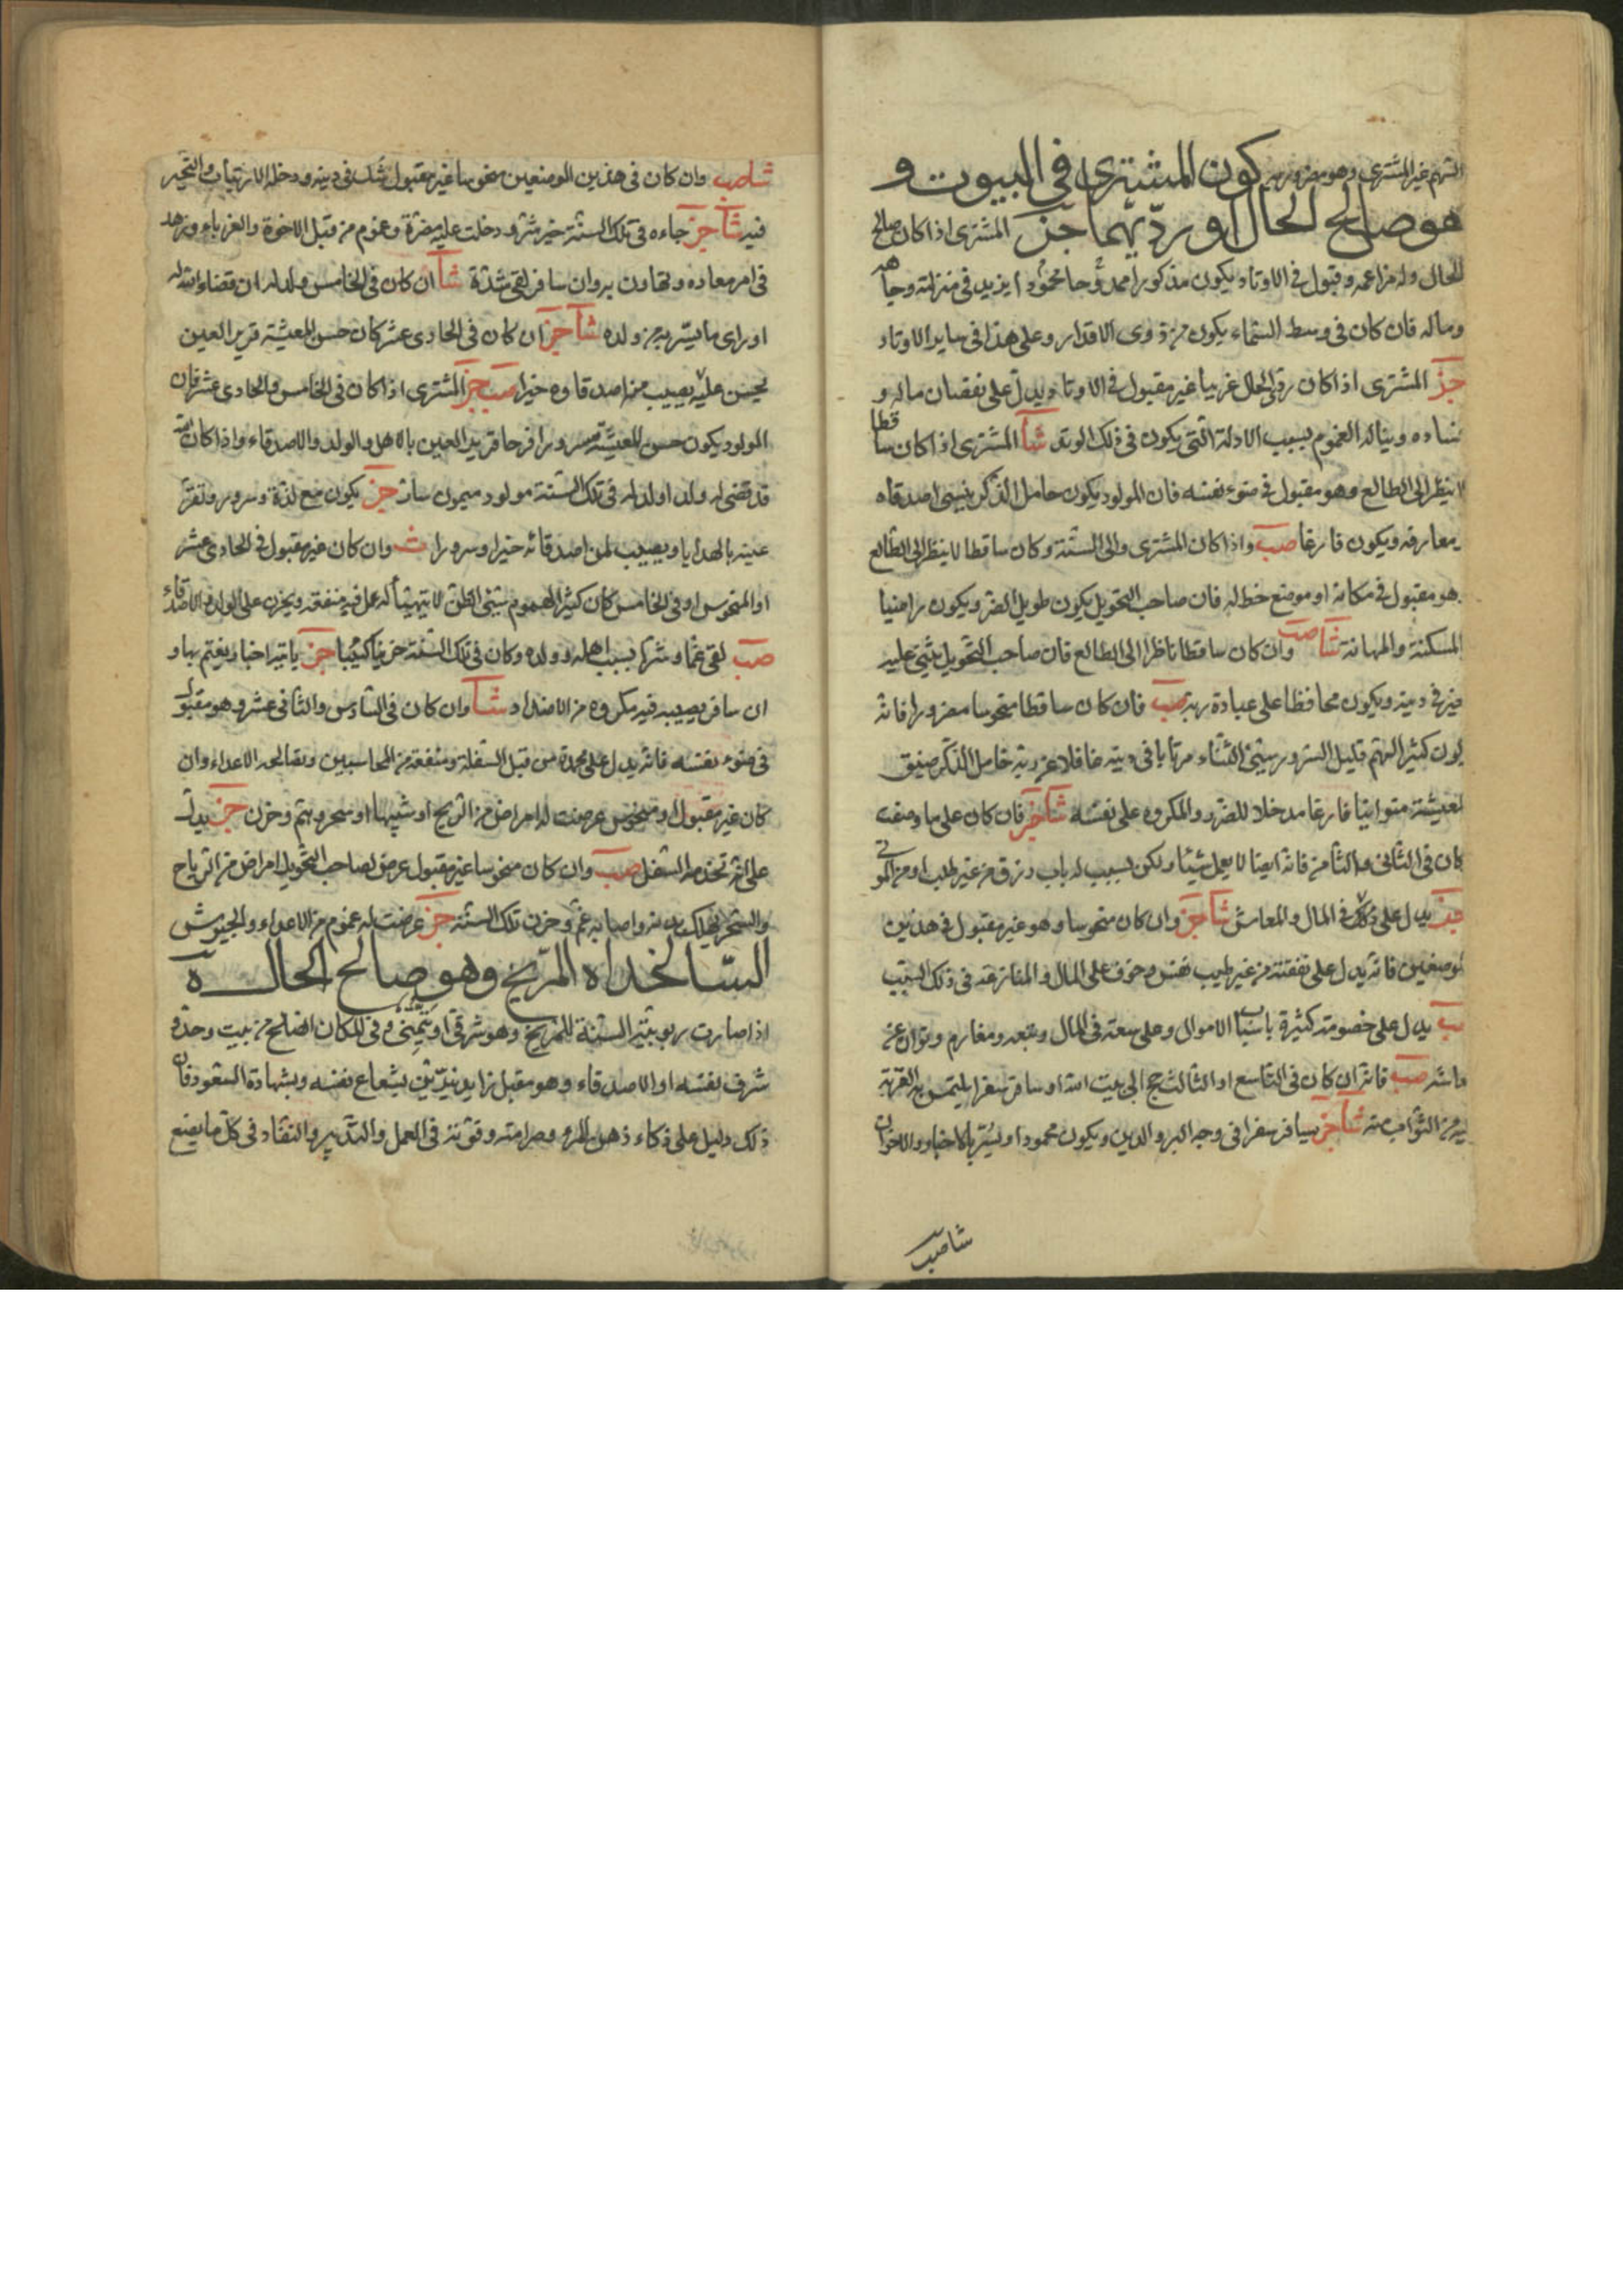 السهم غير المشتري وهو مضرور به كون المشتري في البيوت و
هو صالح الحال او ردّيهما جز المشترى اذا كان صالح
الحال وله مزاعمه وقبول فى الاوتاد يكون مذكورا ممدوحا محمودا يزيد فى منزلته وجاهه
وماله فان كان فى وسط السماء يكون من ذوى الاقدار وعلى هذا فى ساير الاوتاد
جز المشترى اذا كان ردى الحال غريبا غير مقبول فى الاوتاد ويدل على نقصان ماله و
فساده ويناله الغموم بسبب الادلة التى يكون فى ذلك الوتد شآ المشترى اذا كان ساقطا
لا ينظر الى الطالع وهو مقبول فى ضوء نفسه فان المولود يكون خامل الذكر ينسى اصدقاه
ومعارفه ويكون فارغا صب واذا كان المشترى والى السنة وكان ساقطا لا ينظر الى الطالع
وهو مقبول فى مكانه او موضع حظ له فان صاحب التحويل يكون طويل الضر ويكون راضيا
المسكنة والمهانة شآ صب وان كان ساقطا ناظرا الى الطالع فان صاحب التحويل يثنى عليه
خير فى دينه ويكون محافظا على عبادة ربه صب فان كان ساقطا منحوسا مضرورا فانه
يكون كثير الهم قليل السرور سيئ الثناء مرتابا فى دينه غافلا عن ربه خامل الذكر ضيق
المعيشة متوانيا فارغا مدخلا للضرر والمكروه على نفسه شآ جز فان كان على ما وصفت
كان فى الثانى والثامن فانه ايضا لا يعمل شيئا ولكن يسبب له باب رزق من غير طلب او من الموتى
جز يدل على ذلك فى المال والمعاش شآ جز وان كان منحوسا وهو غير مقبول فى هذين
الموضعين فانه يدل على نفقته من غير طيب نفس وخوف على المال والمنازعة فى ذلك السبب
صب يدل على خصومة كثيرة باسباب الاموال وعلى سعة فى المال وتبعه ومغارم وتوان عن
معاشه صب فانه ان كان فى التاسع او الثالث حج الى بيت الله او سافر سفرا يلتمس به القربة
من الثواب منه شآ جز يسافر سفرا فى وجه البر والدين ويكون محمودا ويسر بالاخبار والاخوان
شاصب
شاصب وان كان فى هذين الموضعين منحوسا غير مقبول شك فى دينه ودخله الارتياب والتحير
فيه شآ جز جاءه فى تلك السنة خبر شر ودخلت عليه مضرة وغموم من قبل الاخوة والغرباء وزهد
فى امر معاده وتهاون به وان سافر لقى شدة شآ ان كان فى الخامس ولد له ان قضاء الله له
او راى ما يسر به من ولده شآ جز ان كان فى الحادى عشر كان حسن المعيشة قرير العين
يحسن عليه يصيب من اصدقاوه خيرا صب جز المشترى اذا كان فى الخامس والحادى عشر فان
المولود يكون حسن المعيشة مسرورا فرحا قرير العين بالاهل والولد والاصدقاء واذا كان الله
قد قضى له ولد اولد له فى تلك السنة مولود ميمون سار جز يكون مع لذة وسرور وتقر
عينه بالهدايا ويصيب لمن اصدقائه خيرا وسرورا وان كان غير مقبول فى الحادى عشر
او المنحوس او فى الخامس كان كثير الهموم سيئ الظن لا يتهيأ له عمل فيه منفعة ويحزن على الولد والاصدقاء
صب لقى غما وشرا بسبب اهله وولده وكان فى تلك السنة حزينا كئيبا جز ياتيه اخبار يغتم بها و
ان سافر يصيبه فيه مكروه من الاضداد شآ وان كان فى السادس والثانى عشر وهو مقبول
فى ضوء نفسه فانه يدل على محمدة من قبل السفلة ومنفعة من المحاسبين ويصالحه الاعداء وان
كان غير مقبول او منحوس عرضت له امراض من الريح او شبهها او سحر وهم وحزن جز يدل
على انه تخدمه السفل صب وان كان منحوسا غير مقبول عرض لصاحب التحويل امراض من الرياح
والسحر يهلك بدنه واصابه غم وحزن تلك السنة جز عرضت له غموم من الاعداء والجيوش
السالخداه المرّيخ وهو صالح الحال
اذا صارت ربوبية السنة للمريخ وهو شرقى او يتمنى وفى المكان الصالح من بيت وحده و
شرف نفسه او الاصدقاء وهو مقبل زايد نير بشعاع نفسه وبشهادة السعود فان
ذلك دليل على ذكاء ذهن المرو وصرامته وقوته فى العمل والتدبير والنفاد فى كل ما يصنع